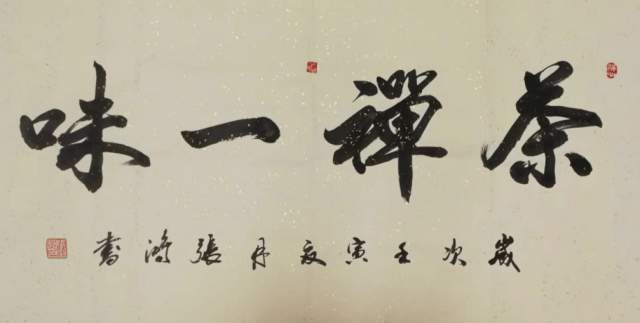 茶禪一味
歲次壬寅夏月張鴻書